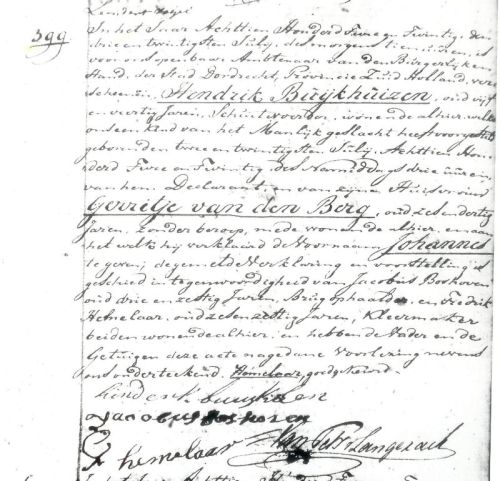 399
In het Jaar Achttien Honderd Twee en Twintig, den
drie en twintigsten July, des morgens tien uuren, is
voor ons openbaar Ambtenaar van den Burgerlyken
Stand, der Stad Dordrecht, Provincie Zuid Holland, vers
scheenen Hendrik Buijkhuizen, oud vyf
en veertig Jaren, Schuitevoerder, wonende alhier, welke
ons een kind van het Manlijk geslacht heeft voorgesteld
gebooren den twee en twintigsten July, Achttien Hon
derd Twee en Twintig, des Namiddags drie uuren,
van hem Declarant, en van zijne Huisvrouw
Gerritje van den Berg, oud zes en dertig
Jaren, zonder beroep, mede wonende alhier, en aan
het welk hij verklaard de Voornaam Johannes
te geven; degemelde Verklaring en voorstelling is
geschied in tegenwoordigheid van Jacobus Boshoven
oud drie en zestig Jaren, Brugophaalder, en Fredrik
Hemelaar, oud zes en zestig Jaren, Kleermaker
beiden wonende alhier; en hebben de Vader en de
Getuigen deze acte na gedane Voorlezing nevens
ons onderteekend. Hemelaar, goedgekeurd.
hinderk buuijkhusen
Jacobus Boshoven
F himelaar